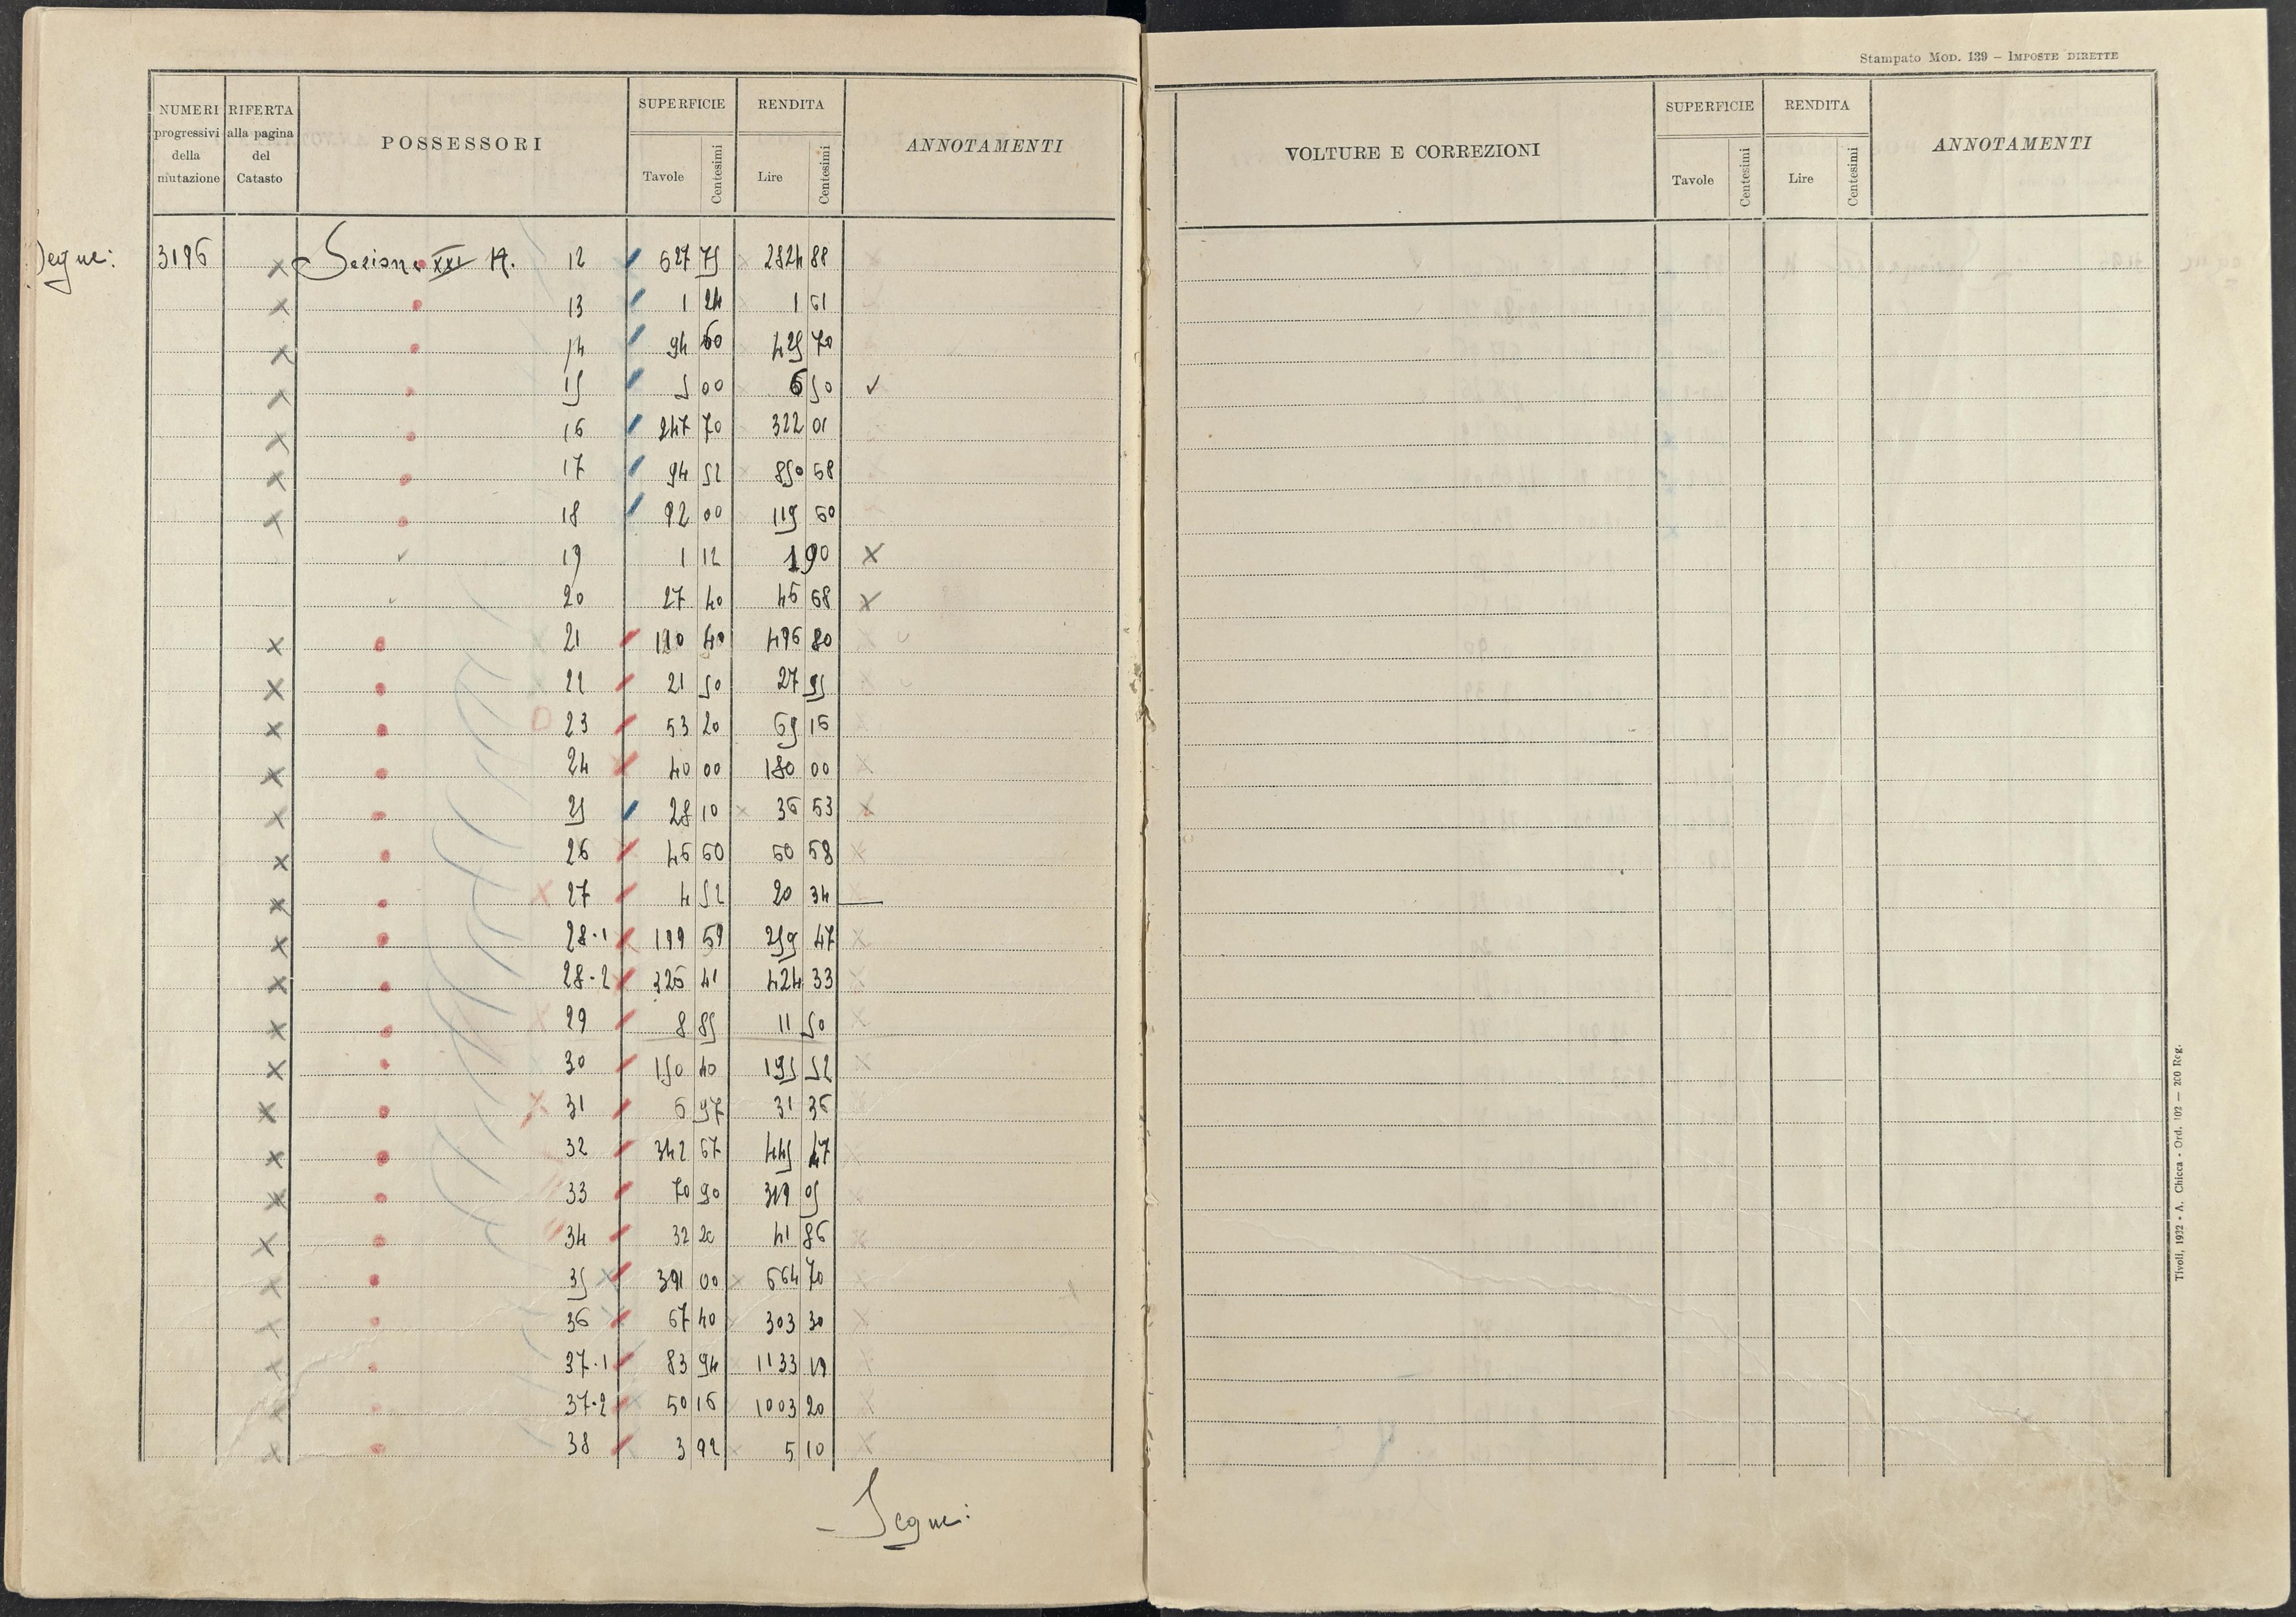 Stampato MOD. 139 – IMPOSTE DIRETTE
NUMERI progressivi della mutazione
RIFERTA alla pagina del Catasto
POSSESSORI
SUPERFICIE
Tavole
Centesimi
RENDITA
Lire
Centesimi
ANNOTAMENTI
VOLTURE E CORREZIONI
SUPERFICIE
Tavole
Centesimi
RENDITA
Lire
Centesimi
ANNOTAMENTI
Segue: 3196 Sezione XXI A. 12 627 75 2824 88
13 1 24 1 61
14 94 60 425 70
15 5 00 6 50
16 247 70 322 01
17 94 52 850 68
18 92 00 119 60
19 1 12 1 90
20 27 40 46 58
21 110 40 496 80
22 21 50 27 95
23 53 20 69 16
24 40 00 180 00
25 28 10 36 53
26 46 60 60 58
27 4 52 20 34
28-1 199 59 259 47
28-2 326 41 424 33
29 8 85 11 50
30 150 40 195 52
31 6 97 31 36
32 342 67 445 47
33 70 90 319 05
34 32 20 41 86
35 391 00 664 70
36 67 40 303 30
37-1 83 94 1133 19
37-2 50 16 1003 20
38 3 92 5 10
Segue:
Tivoli, 1932 - A. Chicca - Ord. 102 — 200 Reg.